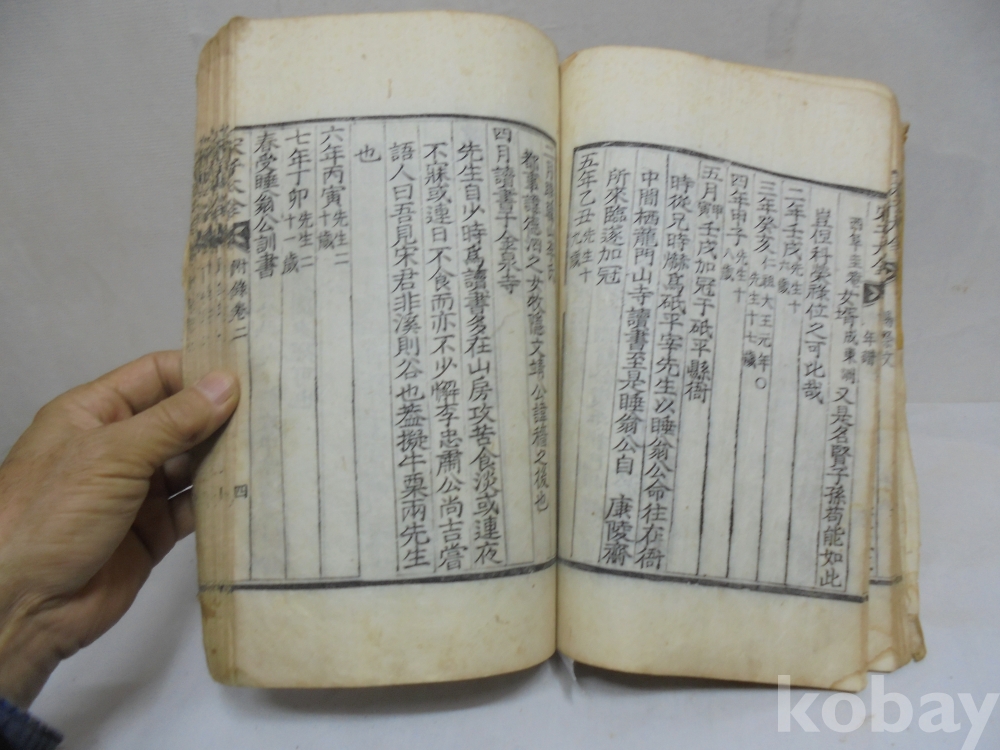 女壻成東朔 又是名賢子孫苟能如此
豈但科榮祿位之可比哉
二年壬戌 先生十六歲
三年癸亥 仁祖大王元年○先生十七歲
四年甲子 先生十八歲
五月 甲寅 壬戌加冠于砥平縣衙
時從兄時爀爲砥平宰先生以睡翁公命往在衙
中間栖龍門山寺讀書至是睡翁公自 康陵齋
所來臨遂加冠
五年乙丑 先生十九歲
都事諱德泗之女牧隱文靖公諱穡之後也
四月讀書于金泉寺
先生自少時爲讀書多在山房攻苦食淡或連夜
不寐或連日不食而亦不少懈李忠肅公尚吉嘗
語人曰吾見宋君非溪則谷也蓋擬牛栗兩先生
也
六年丙寅 先生二十歲
七年丁卯 先生二十一歲
春受睡翁公訓書
宋子大全 附錄卷二
四
年譜
kobay